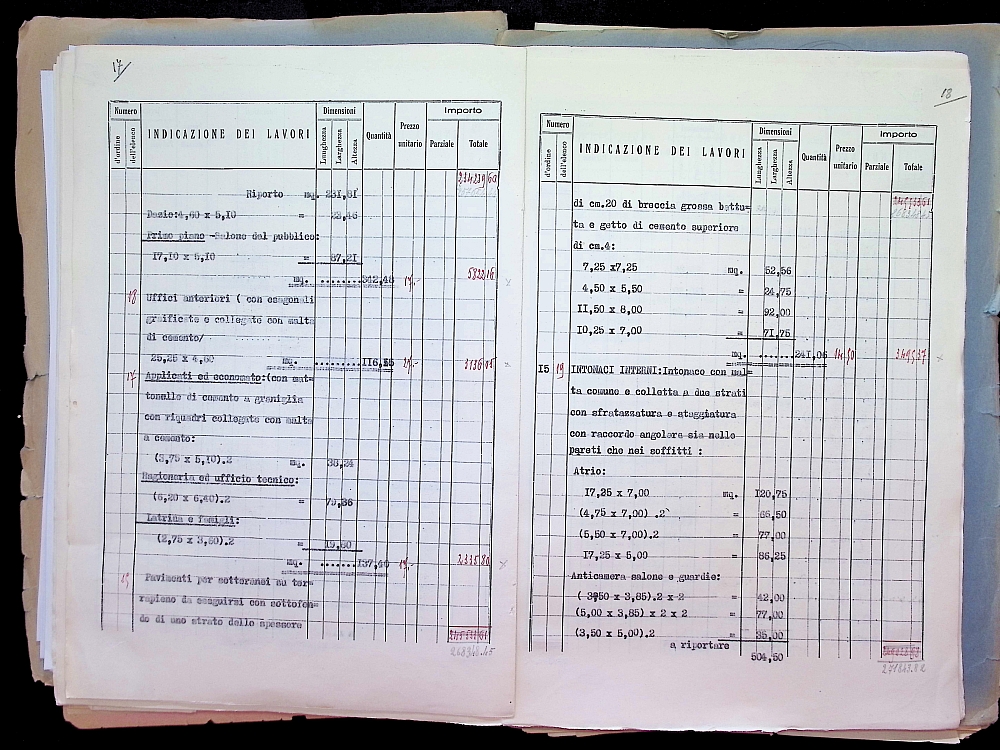 17
Numero
d'ordine
dell'elenco
INDICAZIONE DEI LAVORI
Dimensioni
Lunghezza
Larghezza
Altezza
Quantità
Prezzo unitario
Importo
Parziale
Totale
Riporto mq. 231,81
Dazio:4,60 x 5,10 = 23,46
Primo piano -Salone del pubblico:
17,10 x 5,10 = 87,21
mq. ........342,48 17.- 5822 16
18 Uffici anteriori ( con esagonali
graificate e collegate con malta
di cemento/
25,25 x 4,60 mq. ........116,15 27.- 3136 05
17 Applicati ed economato:(con mat=
tonelle di cemento a graniglia
con riquadri collegate con malta
a cemento:
(3,75 x 5,10).2 mq. 38,24
Ragioneria ed ufficio tecnico:
(6,20 x 6,40).2 = 79,36
Latrina e famigli:
(2,75 x 3,60).2 = 19,80
mq. .......137,40 17.- 2335 80
Pavimenti per sotteranei su ter=
rapieno da eseguirsi con sottofon=
do di uno strato dello spessore
268948.45
18
Numero
d'ordine
dell'elenco
INDICAZIONE DEI LAVORI
Dimensioni
Lunghezza
Larghezza
Altezza
Quantità
Prezzo unitario
Importo
Parziale
Totale
di cm.20 di breccia grossa battu=
ta e getto di cemento superiore
di cm.4:
7,25 x7,25 mq. 52,56
4,50 x 5,50 = 24,75
11,50 x 8,00 = 92,00
10,25 x 7,00 = 71,75
mq. .......241,06 14 50 3495 37
I5 19 INTONACI INTERNI:Intonaco con mal=
ta comune e colletta a due strati
con sfratazzatura e staggiatura
con raccordo angolare sia nelle
pareti che nei soffitti :
Atrio:
17,25 x 7,00 mq. 120,75
(4,75 x 7,00) .2 = 66,50
(5,50 x 7,00).2 = 77,00
17,25 x 5,00 = 86,25
Anticamera salone e guardie:
( 3,50 x 3,85).2 x 2 = 42,00
(5,00 x 3,85) x 2 x 2 = 77,00
(3,50 x 5,00).2 = 35,00
a riportare 504,50
271843.82